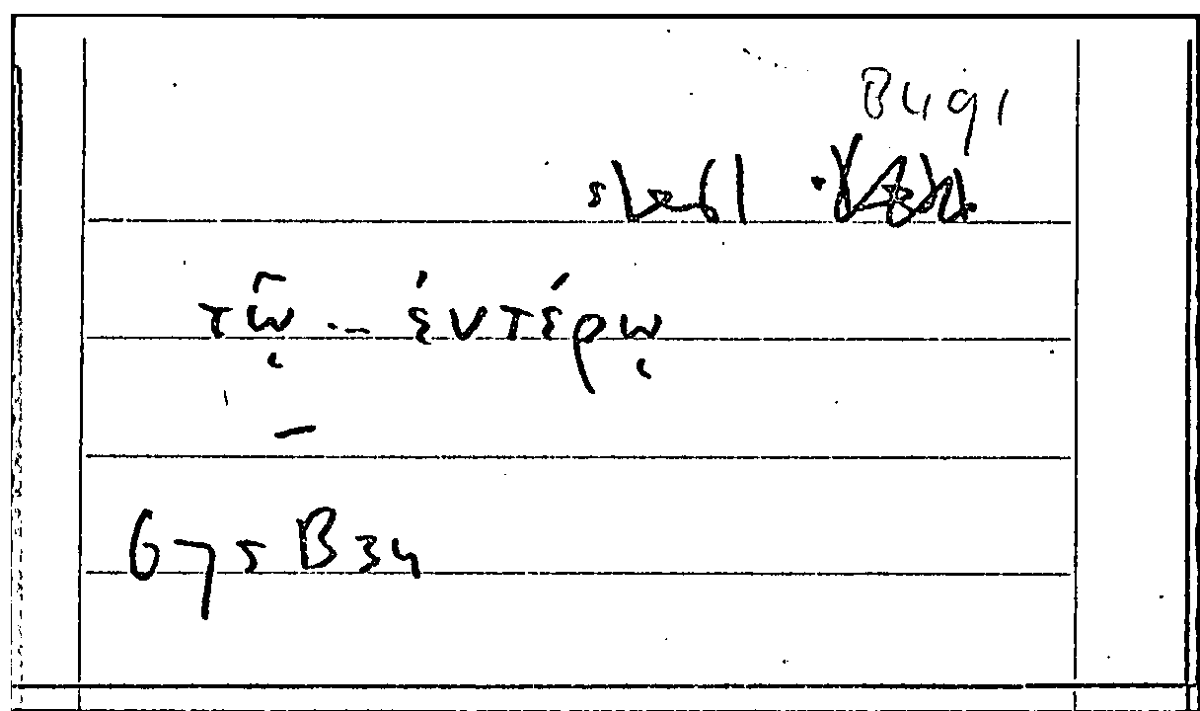 B491
τῷ .– ἐντέρῳ
–
675 B34